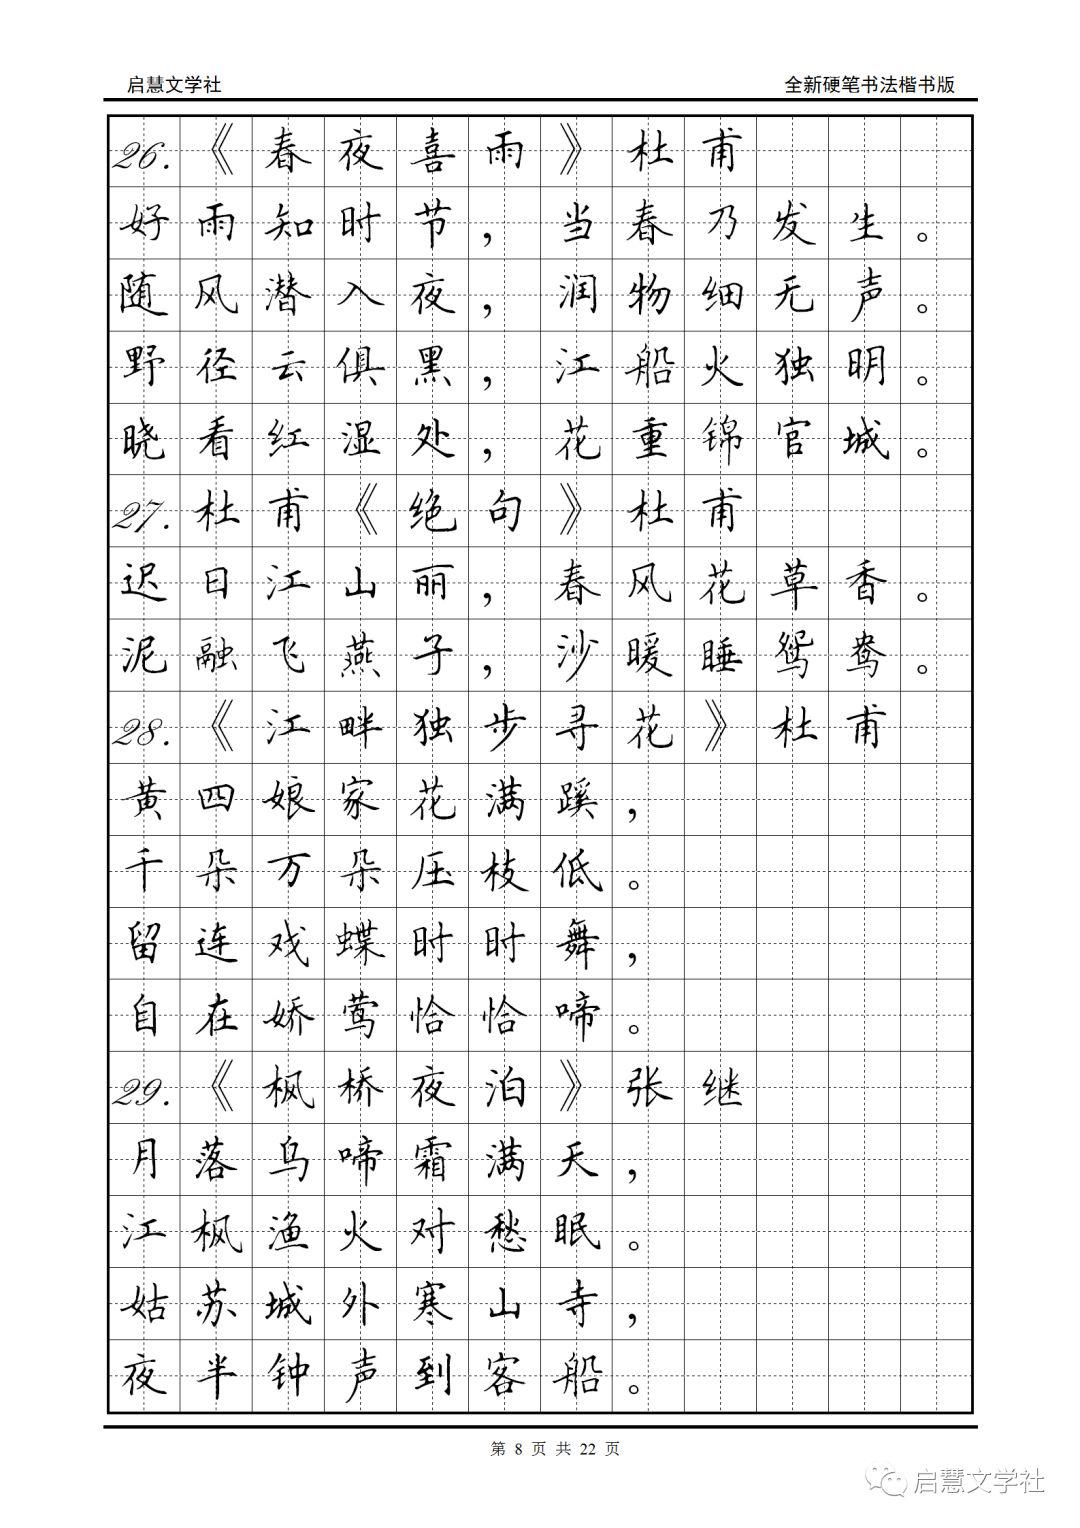 启慧文学社 全新硬笔书法楷书版
26.《春夜喜雨》杜甫
好雨知时节，当春乃发生。
随风潜入夜，润物细无声。
野径云俱黑，江船火独明。
晓看红湿处，花重锦官城。
27.杜甫《绝句》杜甫
迟日江山丽，春风花草香。
泥融飞燕子，沙暖睡鸳鸯。
28.《江畔独步寻花》杜甫
黄四娘家花满蹊，
千朵万朵压枝低。
留连戏蝶时时舞，
自在娇莺恰恰啼。
29.《枫桥夜泊》张继
月落乌啼霜满天，
江枫渔火对愁眠。
姑苏城外寒山寺，
夜半钟声到客船。
第 8 页 共 22 页
启慧文学社